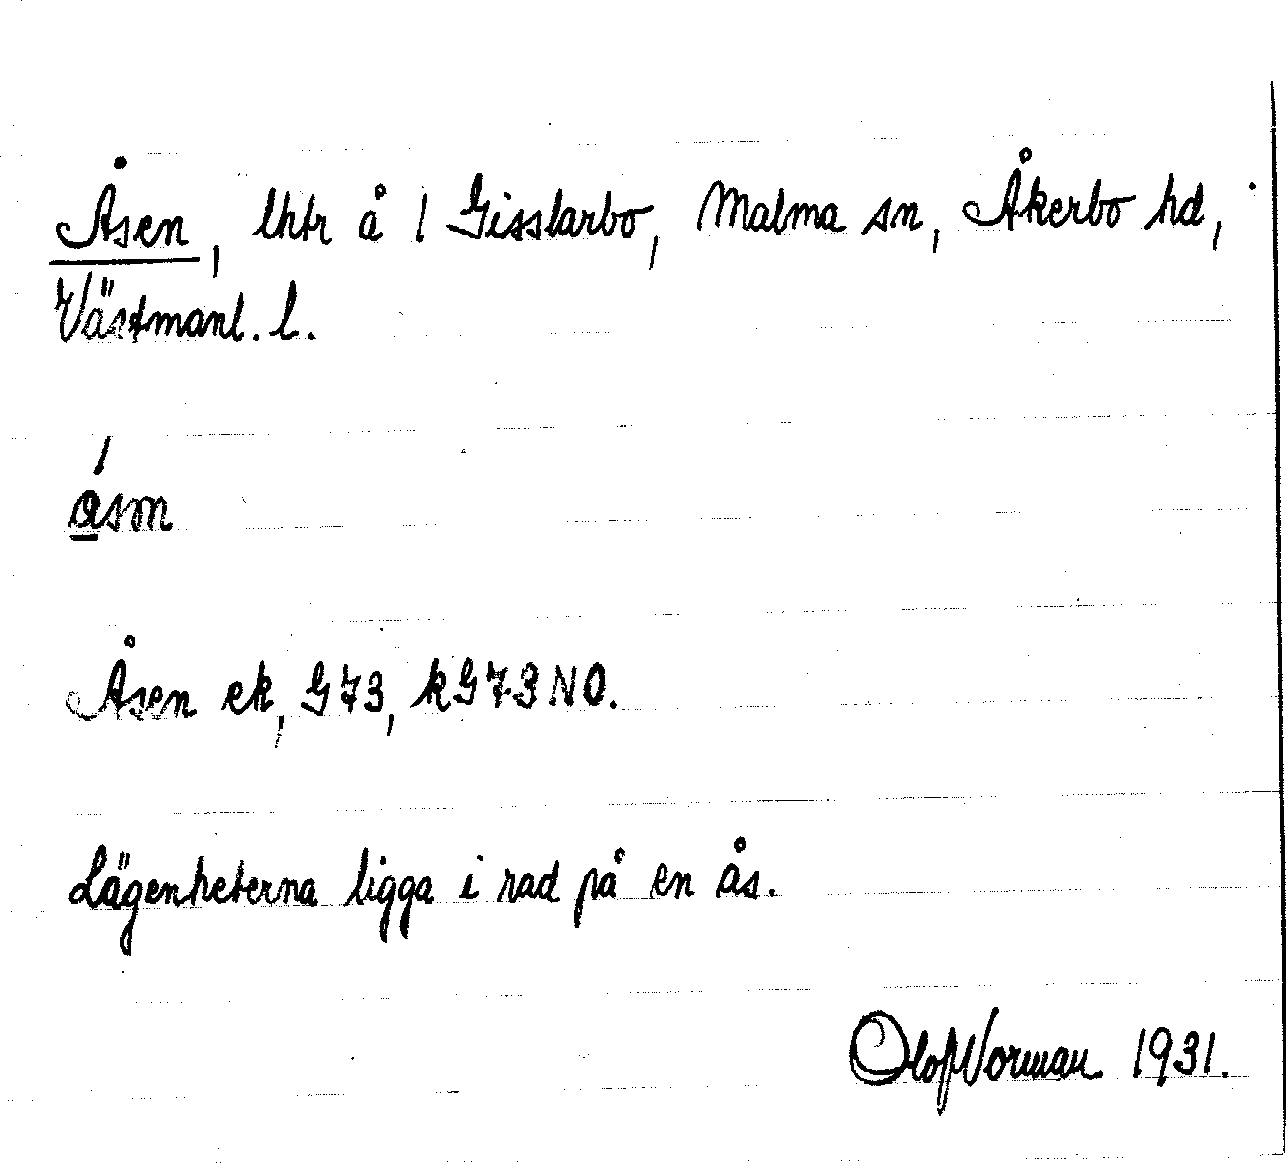 Åsen, lhtr å 1 Gisslarbo, Malma sn, Åkerbo hd,
Västmanl. l.
Åsen ek, G73, kG73NO.
Lägenheterna ligga i rad på en ås.
Olof Norman 1931.